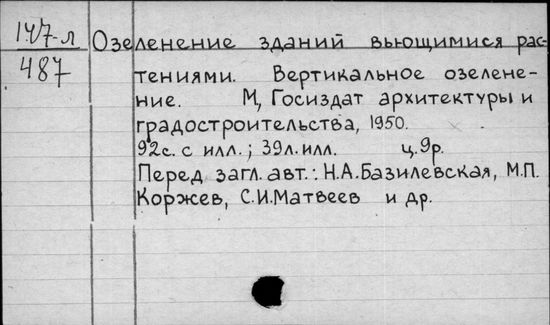 147-л
487
Озеленение зданий вьющимися рас-
тениями. Вертикальное озелене-
ние. М, Госиздат архитектуры и
градостроительства, 1950.
92с. с илл.; 39л. илл. ц. 9р.
Перед загл. авт.: Н.А.Базилевская, М.П.
Коржев, С.И.Матвеев и др.